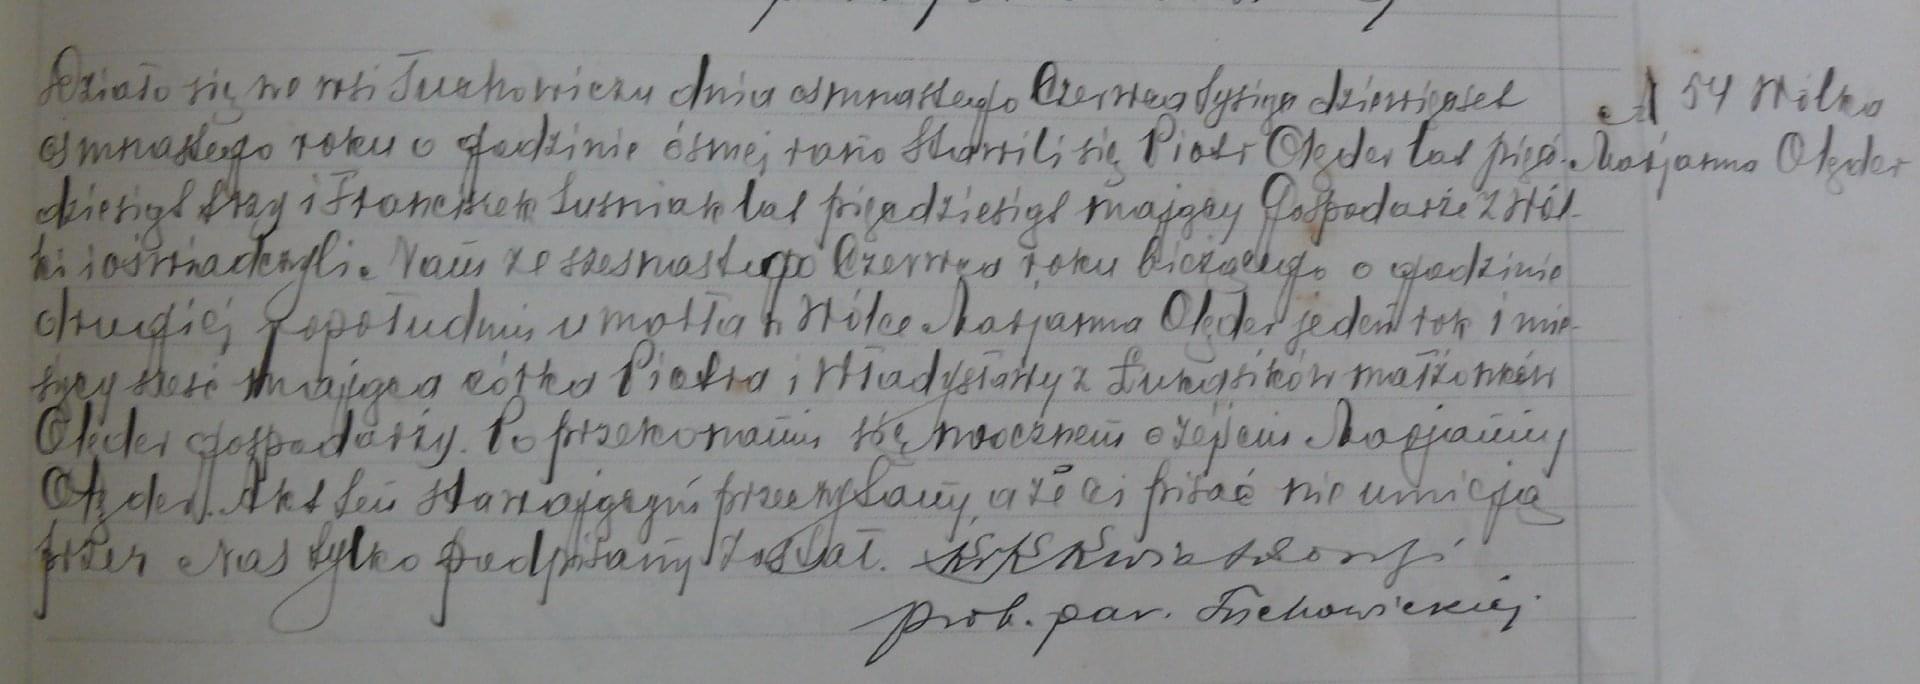 Działo się we wsi Tuchowiczu dnia osmnastego Czerwca tysiąc dziewięset
osmnastego roku o godzinie ósmej rano stawili się Piotr Olęder lat pięć-
dziesiąt trzy i Franciszek Susniak lat pięędziesiąt mający Gospodarze z Wól-
ki i oświadczyli Nam że szesnastego Czerwca roku bieżącego o godzinie
drugiej popołudniu umarła w Wólce Marjanna Olęder jeden rok i mie-
sięcy sześć mająca córka Piotra i Władysławy z Łukasików małżonków
Olęder gospodarzy. Po przekonaniu się naocznem o zejściu Marjanny
Olęder. Akt ten stawającym przeczytany, a że ci pisać nie umieją
przez Nas tylko podpisany został. Ks K Kwiatkowski
prob. par. Tuchowickiej
N 54 Wólka
Marjanna Olęder